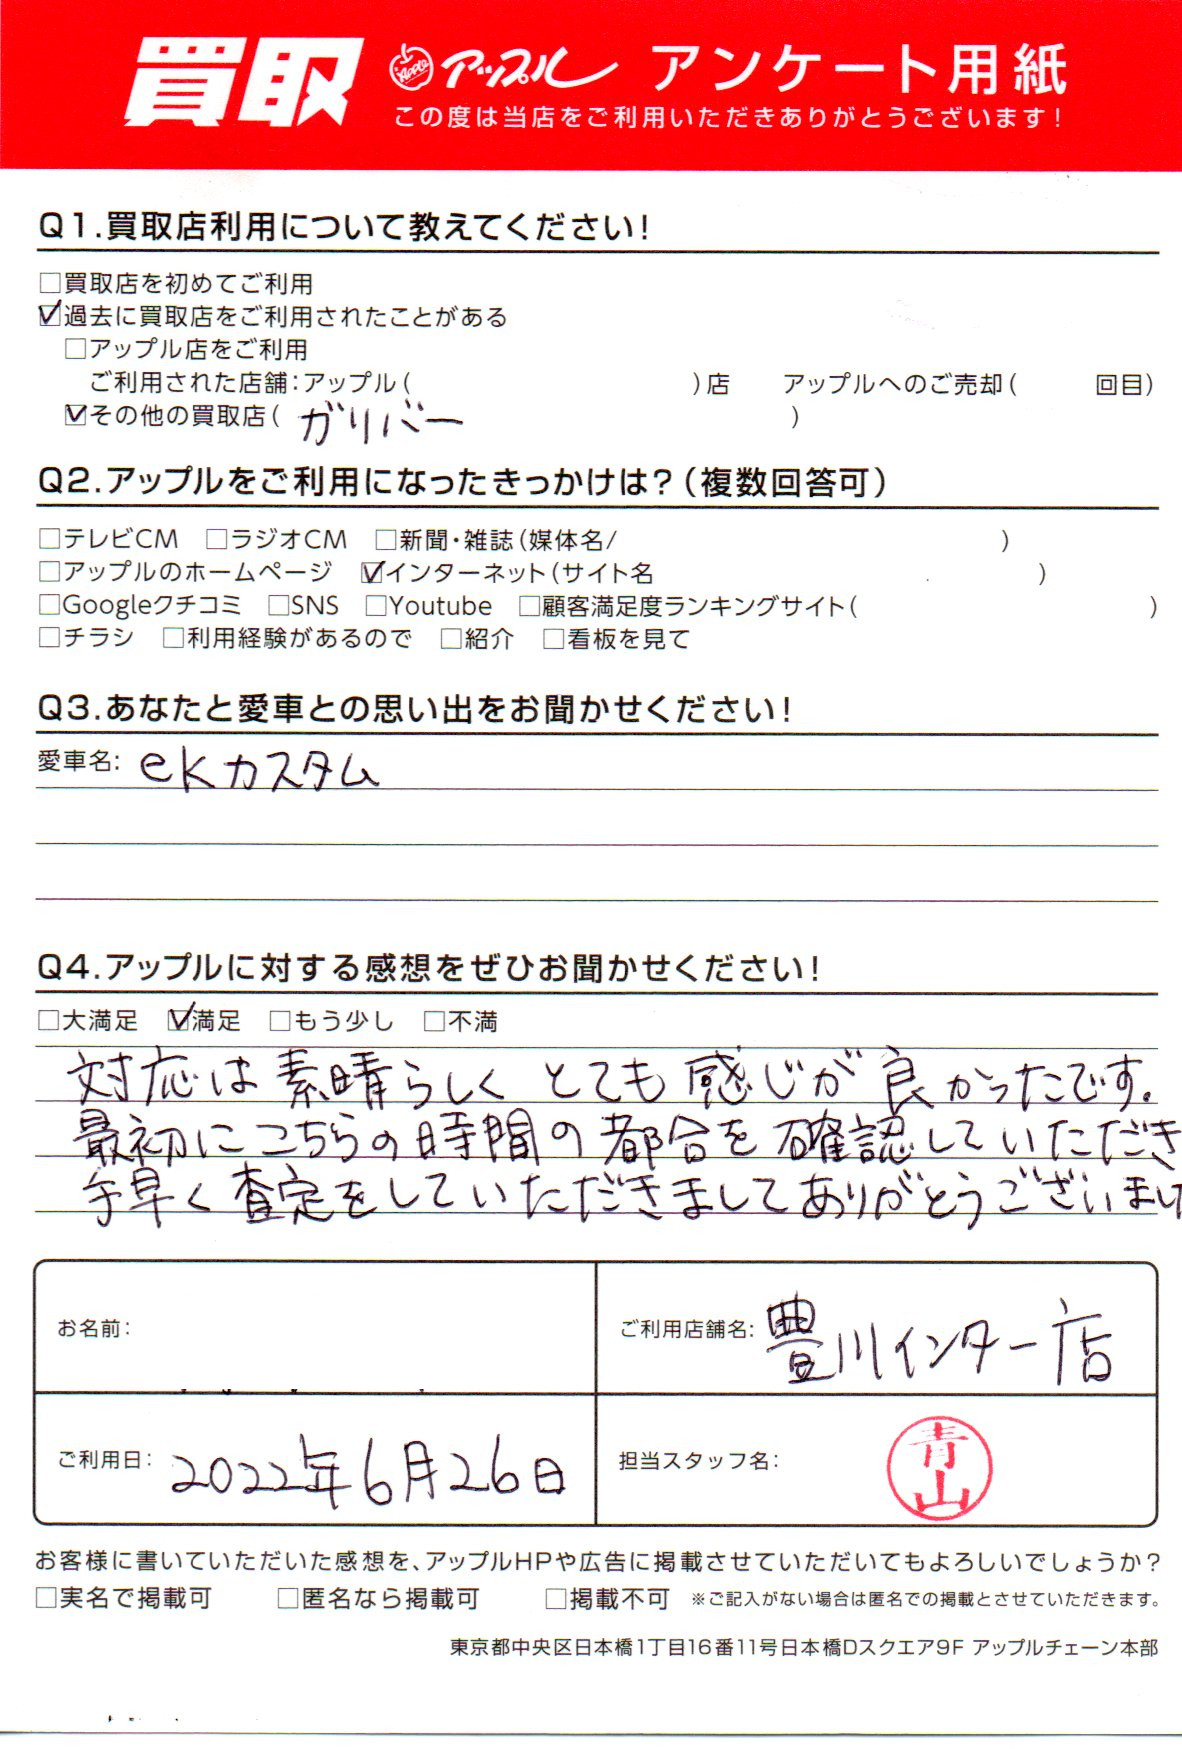 買取 Apple アップル アンケート用紙
この度は当店をご利用いただきありがとうございます!
Q1.買取店利用について教えてください!
□買取店を初めてご利用
☑過去に買取店をご利用されたことがある
□アップル店をご利用
ご利用された店舗:アップル( )店 アップルへのご売却( 回目)
☑その他の買取店( ガリバー )
Q2.アップルをご利用になったきっかけは?(複数回答可)
□テレビCM □ラジオCM □新聞・雑誌(媒体名/ )
□アップルのホームページ ☑インターネット(サイト名 )
□Googleクチコミ □SNS □Youtube □顧客満足度ランキングサイト( )
□チラシ □利用経験があるので □紹介 □看板を見て
Q3.あなたと愛車との思い出をお聞かせください!
愛車名: ekカスタム
Q4.アップルに対する感想をぜひお聞かせください!
□大満足 ☑満足 □もう少し □不満
対応は素晴らしくとても感じが良かったです。
最初にこちらの時間の都合を確認していただき
手早く査定をしていただきましてありがとうございまし
お名前: ご利用店舗名: 豊川インター店
ご利用日: 2022年6月26日 担当スタッフ名: 青山
お客様に書いていただいた感想を、アップルHPや広告に掲載させていただいてもよろしいでしょうか?
□実名で掲載可 □匿名なら掲載可 □掲載不可 ※ご記入がない場合は匿名での掲載とさせていただきます。
東京都中央区日本橋1丁目16番11号日本橋Dスクエア9F アップルチェーン本部